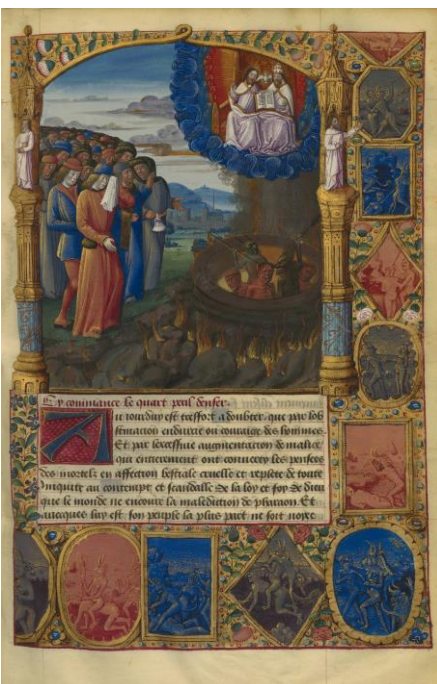 Cy commance le quart peril denfer.
Au iourduy est tresfort a doubter que par lob
stination endurcie ou couraige des hommes
Et par lexcessiue augmentacion de malice
que entierement ont conuerty les pensees
des mortelz en affection bestiale cruelle et replete de toute
iniquite au contempt et scandalle de la loy et foy de dieu
que le monde ne encoure la malediction de pharaon. Et
auecques luy est son peuple la plus part ne soit noyee